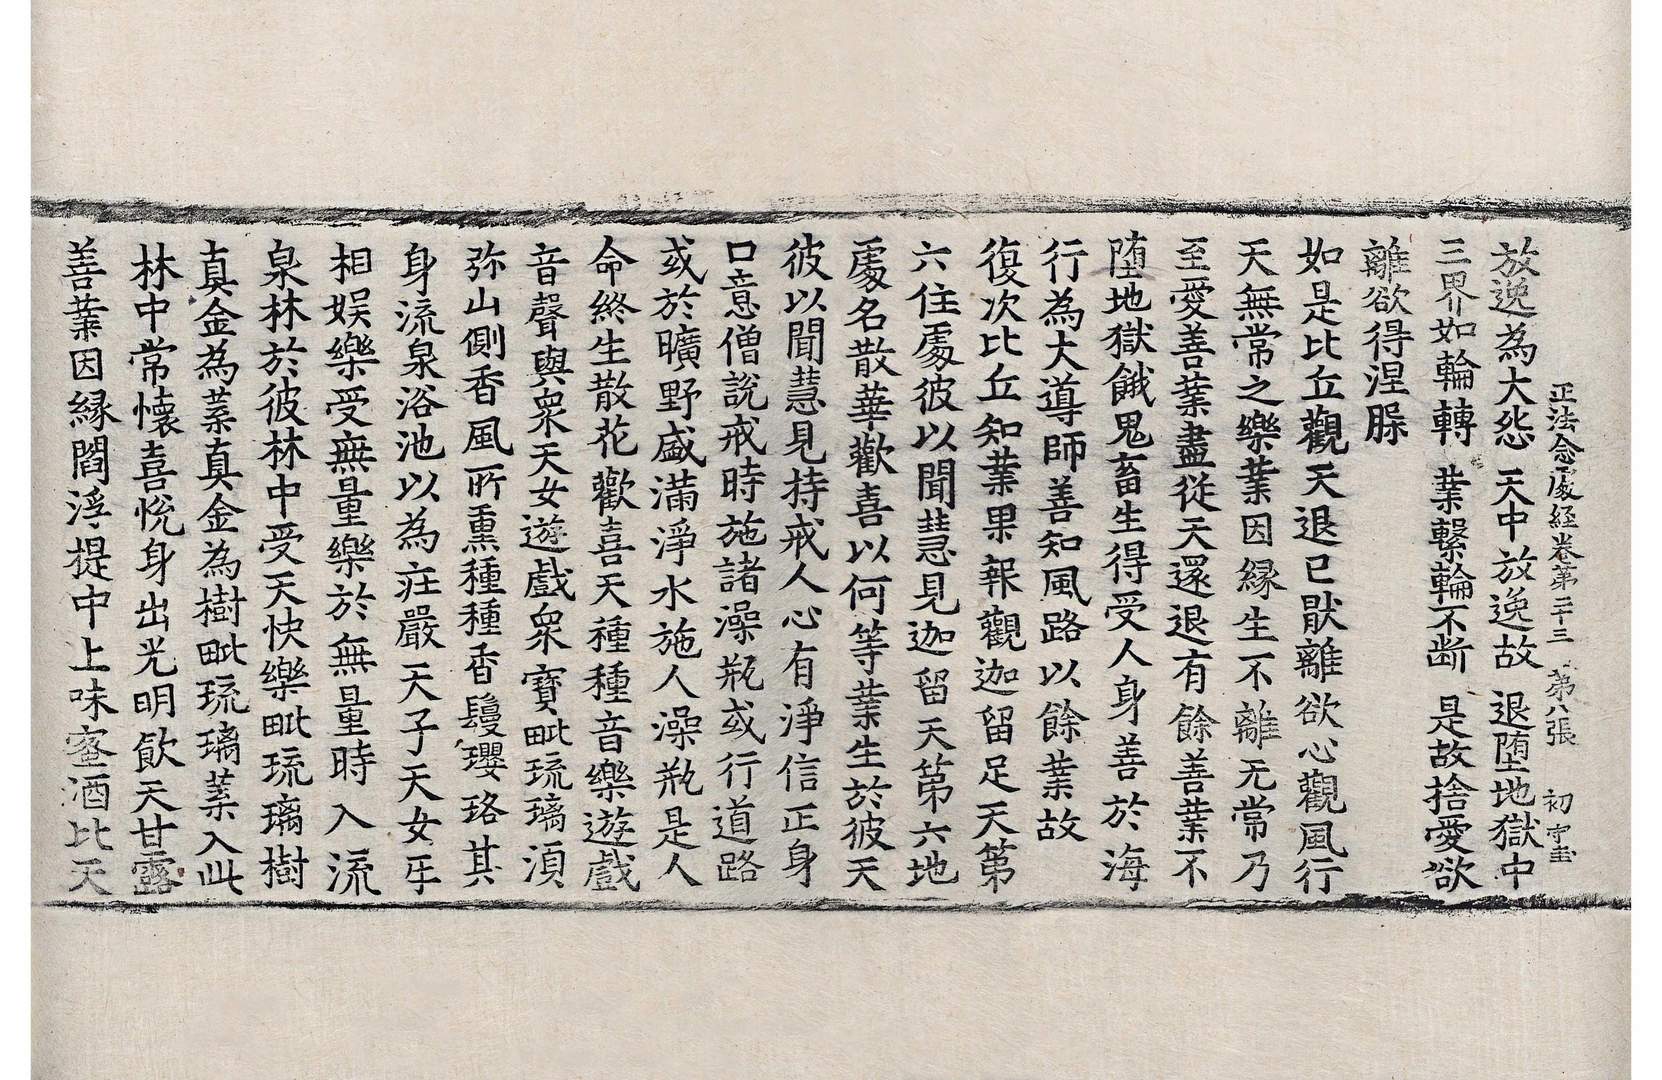 正法念處経卷第二十三 第八張 初
放逸為大怨 天中放逸故 退堕地獄中
三界如輪轉 業繫輪不断 是故捨愛欲
離欲得涅䏶
如是比丘觀天退已猒離欲心觀風行
天無常之樂業因縁生不離无常乃
至愛善業盡從天還退有餘善業不
堕地獄餓鬼畜生得受人身善於海
行為大導師善知風路以餘業故
復次比丘知業果報觀迦留足天第
六住處彼以聞慧見迦留天第六地
處名散華歡喜以何等業生於彼天
彼以聞慧見持戒人心有淨信正身
口意僧說戒時施諸澡瓶或行道路
或於曠野盛滿淨水施人澡瓶是人
命終生散花歡喜天種種音樂遊戲
音聲與衆天女遊戲衆寶毗琉璃湏
弥山側香風所熏種種香鬘瓔珞其
身流泉浴池以為庄嚴天子天女㸦
相娱樂受無量樂於無量時入流
泉林於彼林中受天快樂毗琉璃樹
真金為葉真金為樹毗琉璃葉入此
林中常懐喜悅身出光明飲天甘露
善業因縁閻浮提中上味蜜酒比天